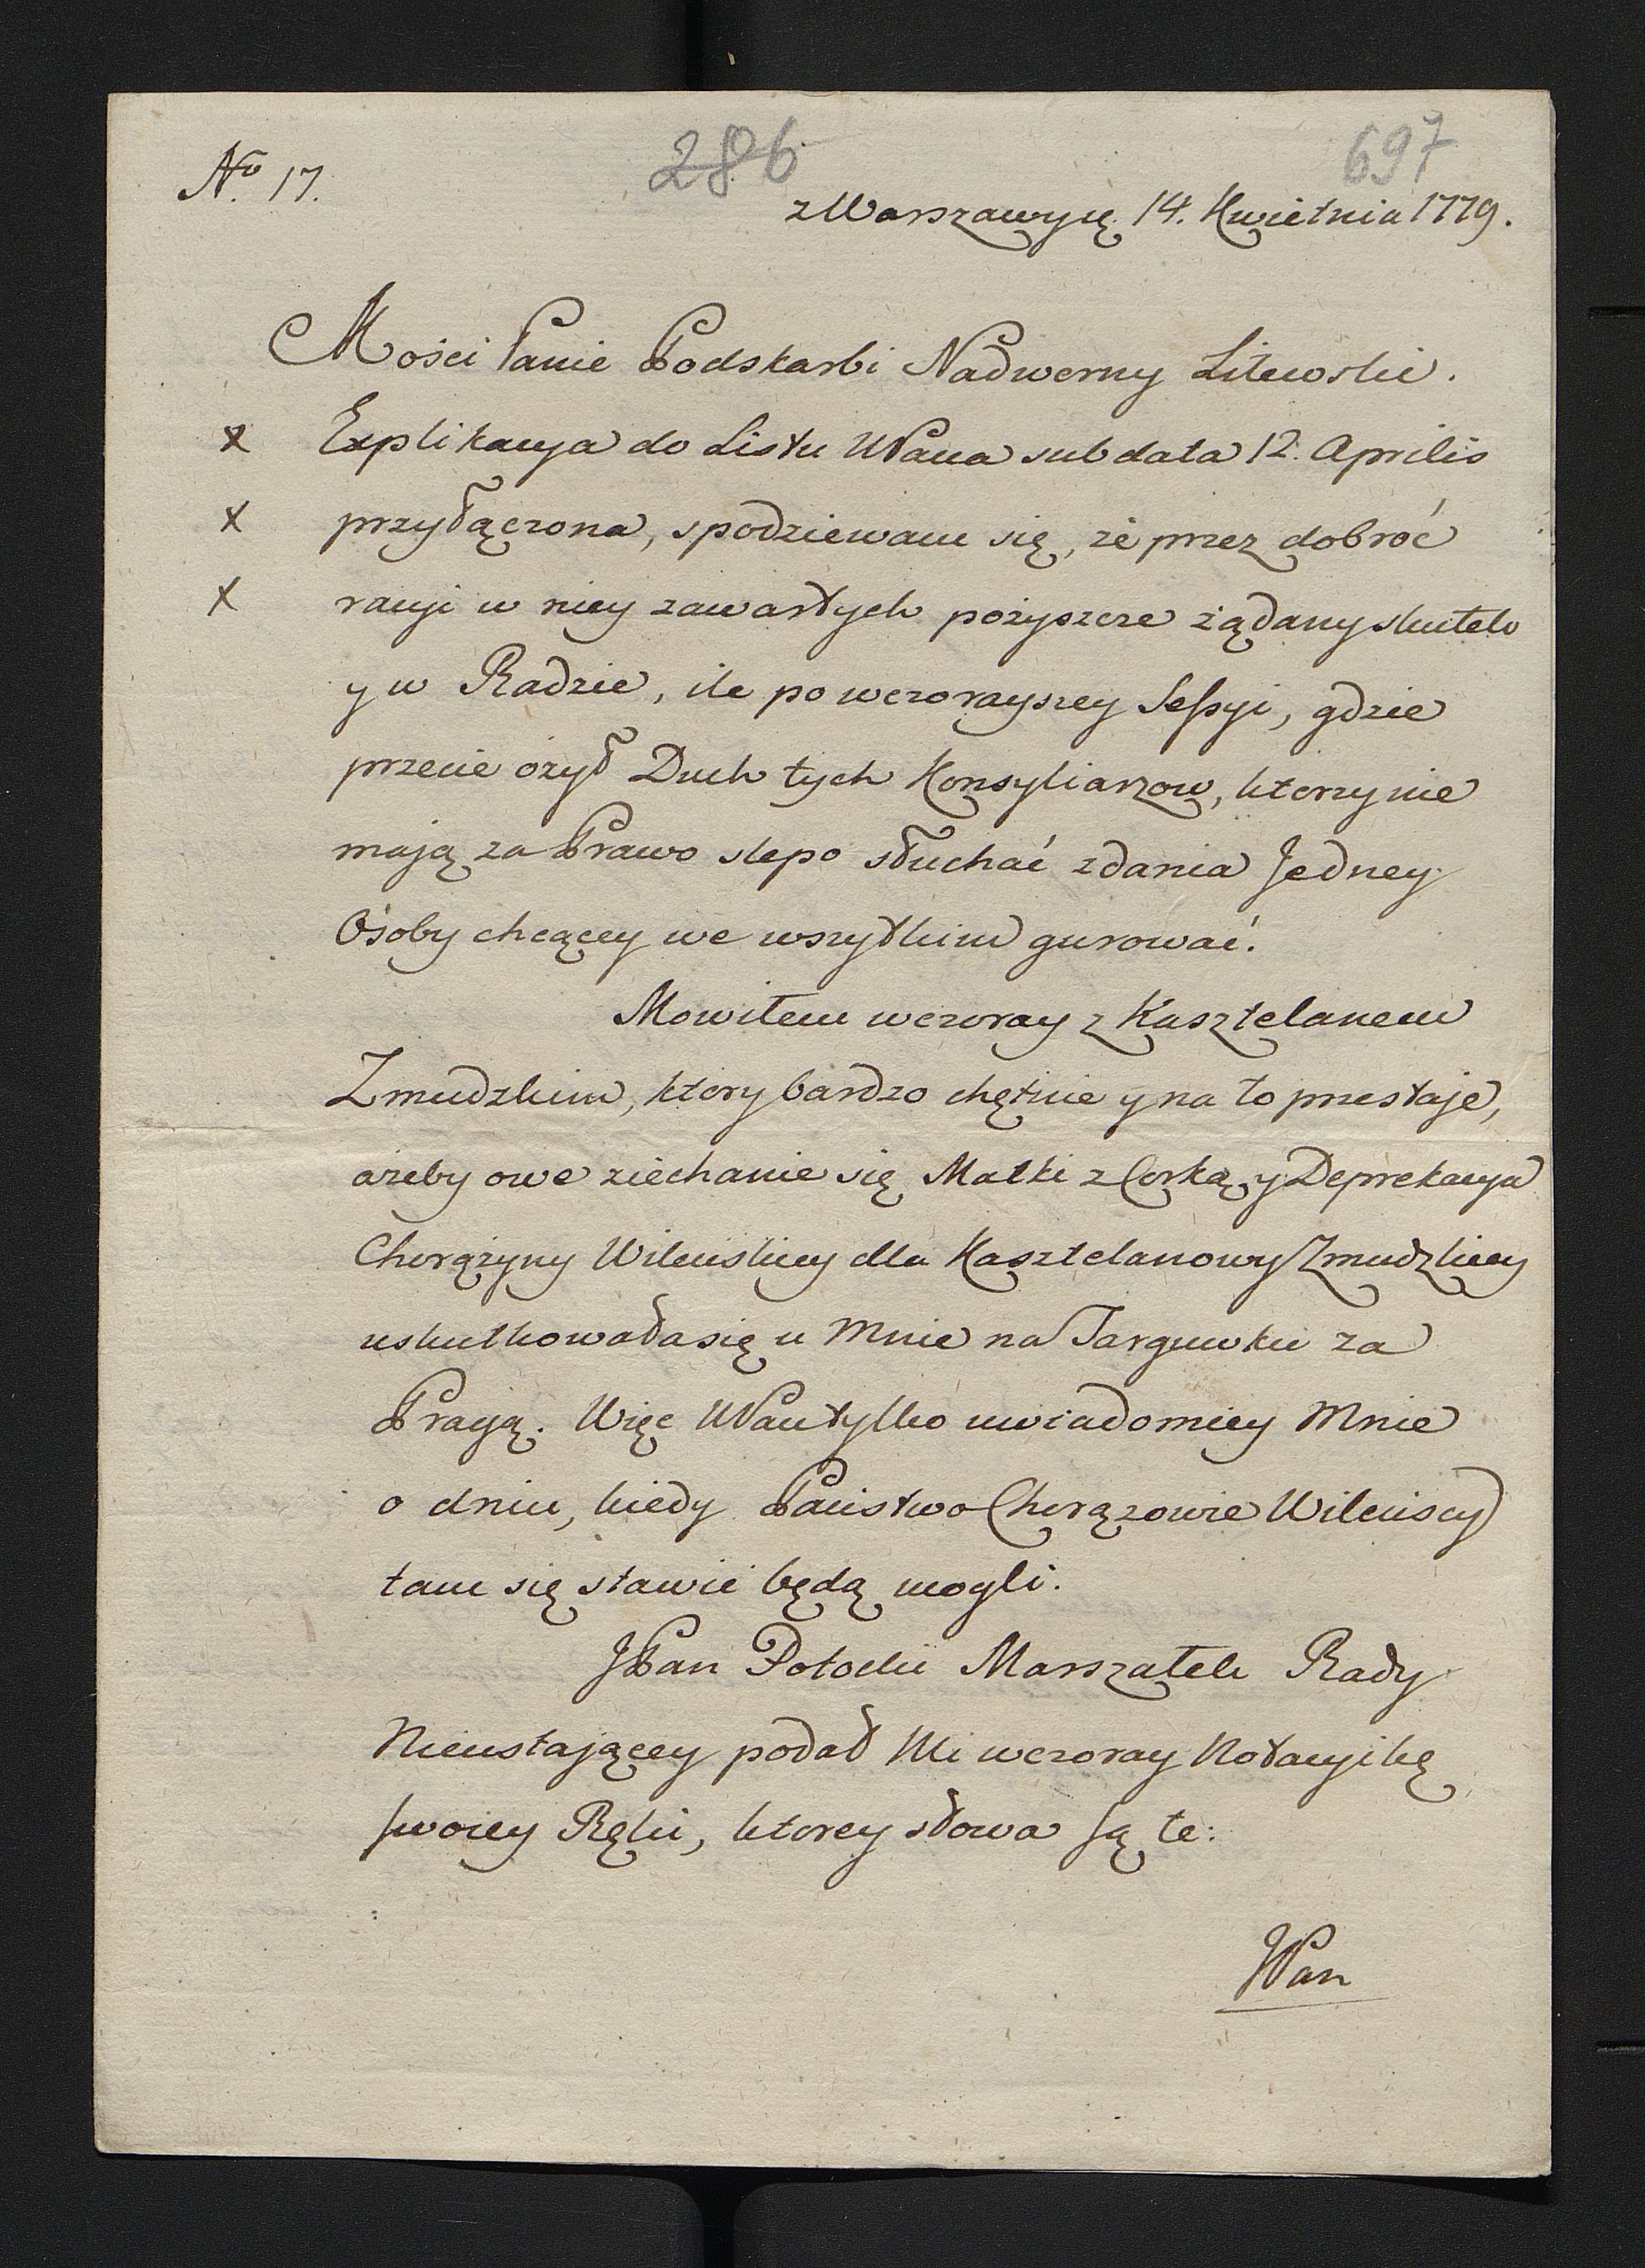 No. 17.
286
697
z Warszawy die 14. Kwietnia 1779.
Mości Panie Podskarbi Nadworny Litewski.
x Explikacya do Listu WPana sub data 12. Aprilis
x przyłączona, spodziewam się, że przez dobroć
x racyi w niey zawartych pozyszcze żądany skutek
y w Radzie, ile po wczorayszey Sessyi, gdzie
przecie ożył Duch tych Konsyliarzow, ktorzy nie
mają za Prawo slepo słuchać zdania Jedney
Osoby chcącey we wszytkim gurować.
Mowiłem wczoray z Kasztelanem
Zmudzkim, ktory bardzo chętnie y na to przestaje,
ażeby owe ziechanie się Matki z Corką, y Deprekacya
Chorążyny Wileńskiey dla Kasztelanowy Zmudzkiey
uskutkowała się u Mnie na Targuwku za
Pragą. Więc WPan tylko uwiadomiey Mnie
o dniu, kiedy Państwo Chorązowie Wileńscy
tam się stawić będą mogli.
JPan Potocki Marszałek Rady
Nieustającey podał Mi wczoray Notacyikę
swoiey Ręki, ktorey słowa są te:
JPan